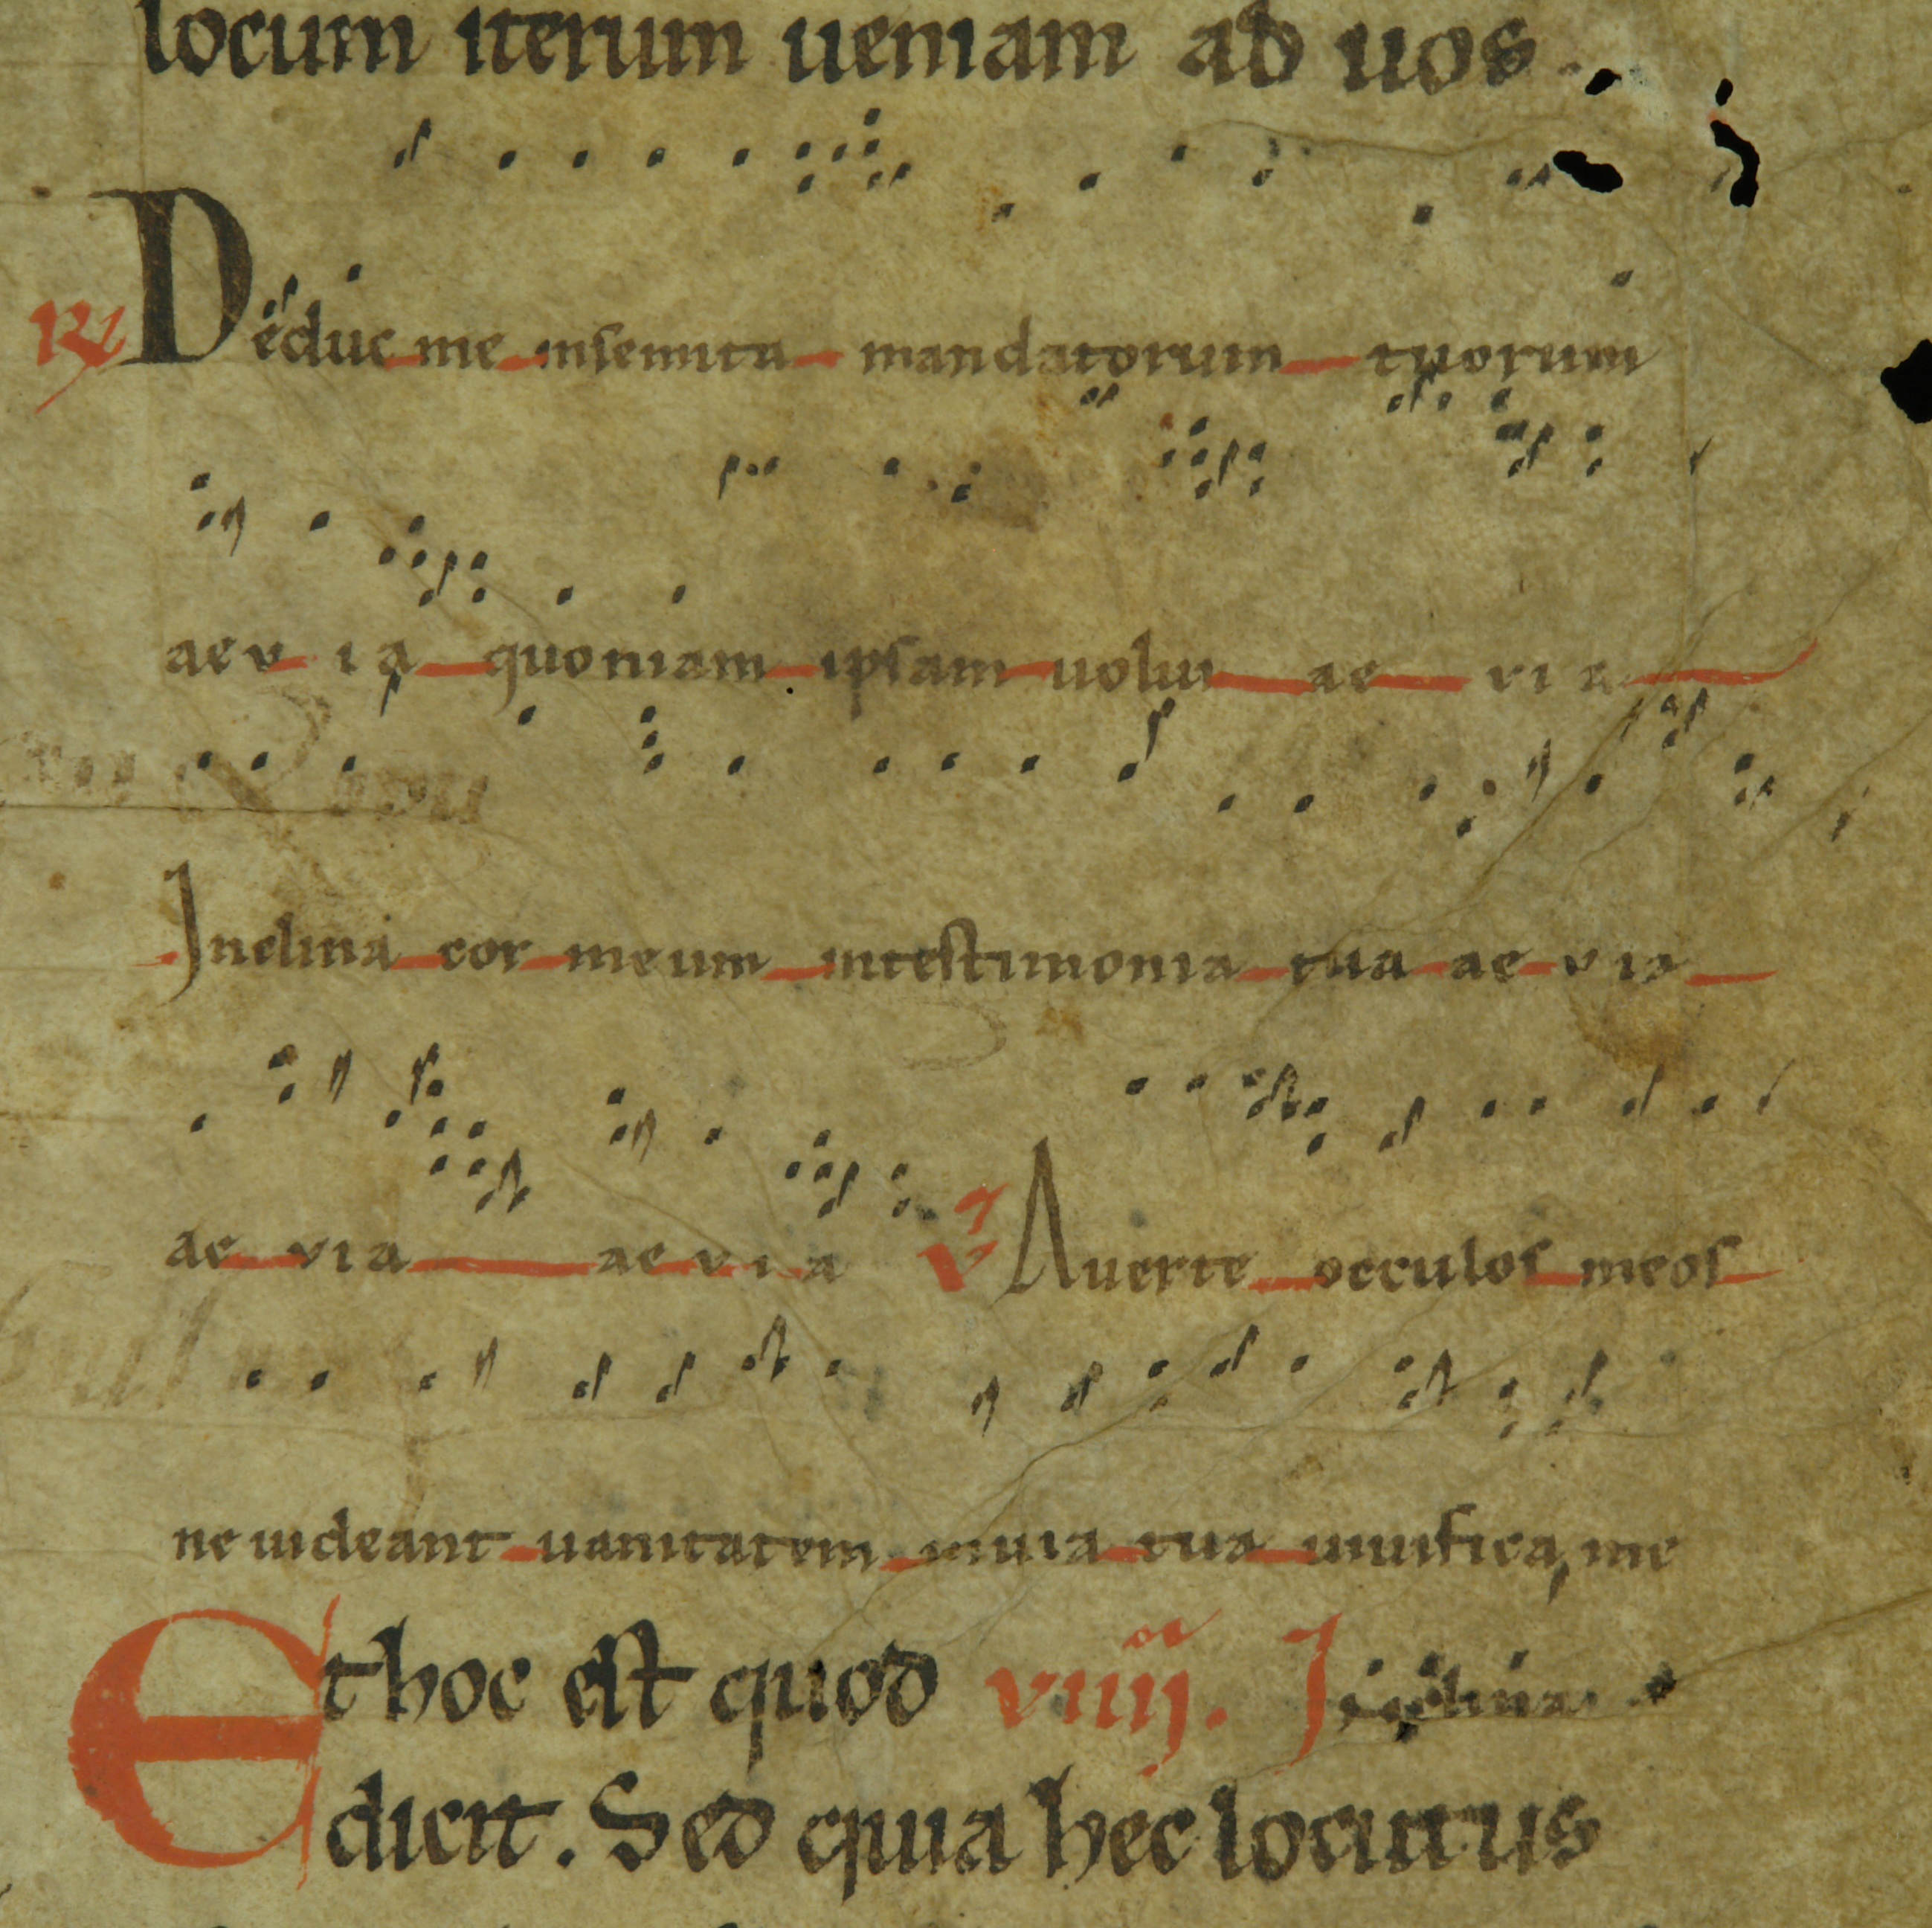 locum iterum ueniam ad uos.
R Deduc me insemita mandatorum tuorum
aevia quoniam ipsam uolui ae via
Inclina cor meum intestimonia tua ae via
ae via ae via V Auerte occulos meos
ne uideant uanitatem inuia tua uiuifica me
Et hoc est quod viiij. or I
dicit. Sed quia hec locutus